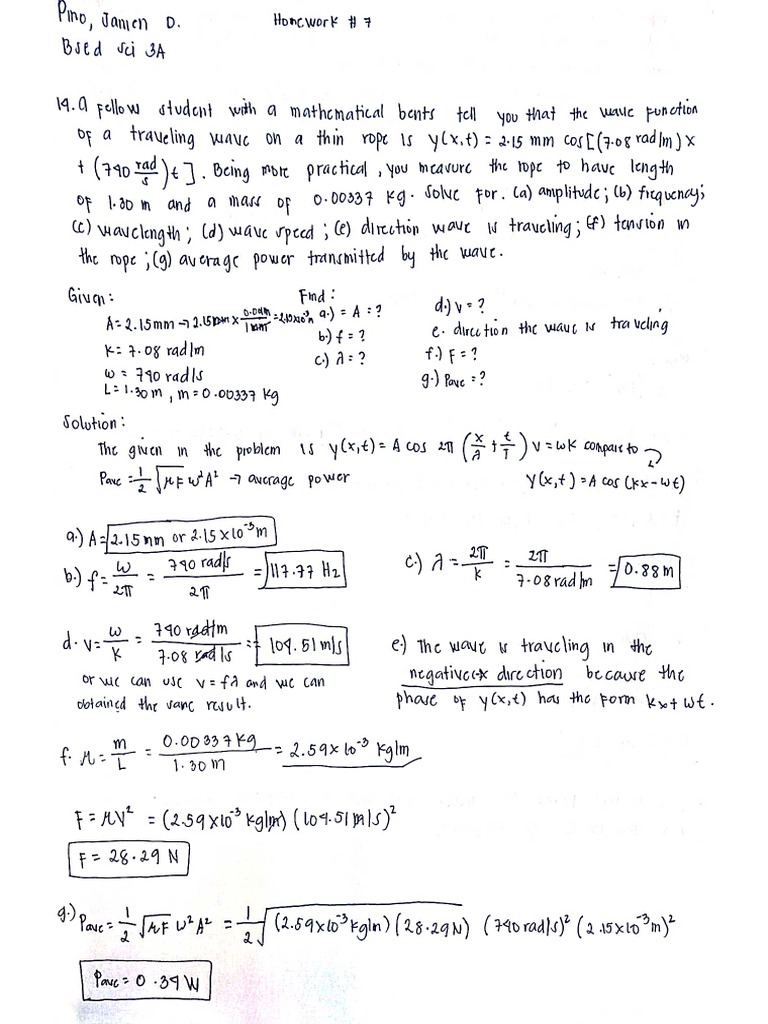 Pino, Jamen D. Homework # 7
Bsed Sci 3A
14. A fellow student with a mathematical bents tell you that the wave function
of a traveling wave on a thin rope is y(x,t) = 2.15 mm cos[(7.08 rad/m)x
+ (740 rad/s)t]. Being more practical, you measure the rope to have length
of 1.30 m and a mass of 0.00337 kg. Solve for. (a) amplitude; (b) frequency;
(c) wavelength; (d) wave speed; (e) direction wave is traveling; (f) tension in
the rope; (g) average power transmitted by the wave.
Given: Find:
A = 2.15mm → 2.15mm × 0.001m/1mm = 2.15×10⁻³m a.) = A = ? d.) v = ?
b.) f = ? e. direction the wave is traveling
K = 7.08 rad/m c.) λ = ? f.) F = ?
ω = 740 rad/s g.) Pave = ?
L = 1.30 m, m = 0.00337 kg
Solution:
The given in the problem is y(x,t) = A cos 2π (x/λ + t/T) v = ωK compare to
Pave = 1/2 √μF ω²A² → average power y(x,t) = A cos (kx - ωt)
a.) A = 2.15mm or 2.15×10⁻³m
b.) f = ω/2π = 740 rad/s / 2π = 117.77 Hz c.) λ = 2π/k = 2π / 7.08 rad/m = 0.88 m
d. v = ω/K = 740 rad/m / 7.08 rad/s = 104.51 m/s e.) The wave is traveling in the
negative-x direction because the
or we can use v = fλ and we can phase of y(x,t) has the form kx + ωt.
obtained the same result.
f. μ = m/L = 0.00337kg / 1.30 m = 2.59×10⁻³ kg/m
F = μV² = (2.59×10⁻³ kg/m) (104.51 m/s)²
F = 28.29 N
g.) Pave = 1/2 √μF ω²A² = 1/2 √(2.59×10⁻³ kg/m) (28.29N) (740 rad/s)² (2.15×10⁻³m)²
Pave = 0.39 W